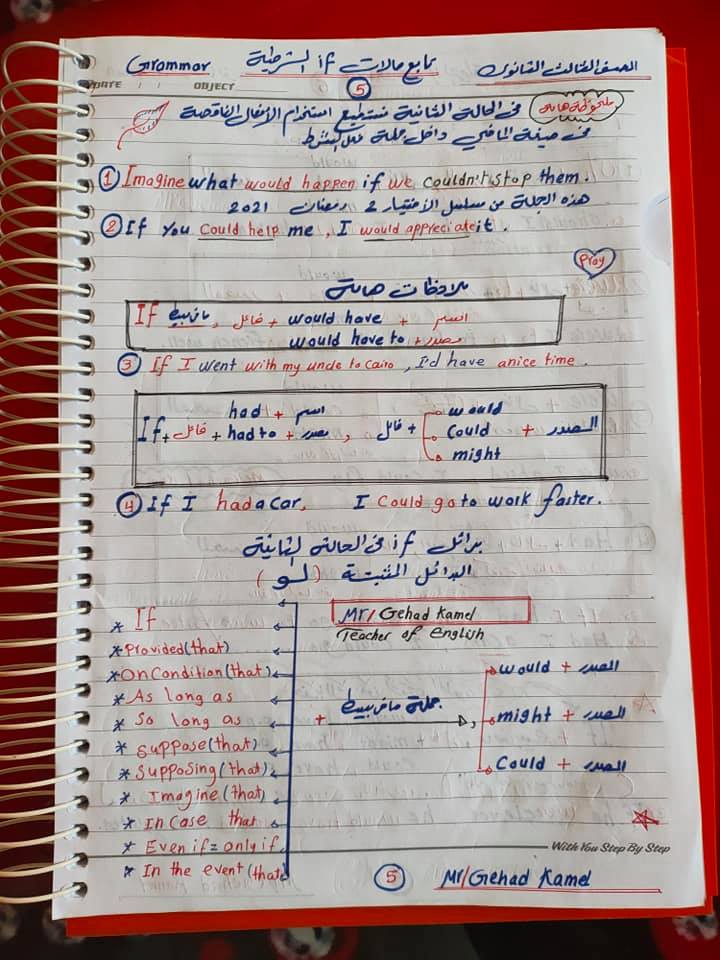 Grammar تابع حالات if الشرطية الصف الثالث الثانوى
DATE : : OBJECT
5
ملحوظة هامة فى الحالة الثانية نستطيع استخدام الأفعال الناقصة
فى صيغة الماضى داخل جملة فعل الشرط
① Imagine what would happen if we couldn't stop them.
هذه الجملة من مسلسل الأختيار 2 رمضان 2021
② If you could help me, I would appreciate it.
Pray
ملاحظات هامة
If ماضى بسيط , فاعل + would have + اسم
would have to + مصدر
③ If I went with my uncle to Cairo, I'd have anice time.
had + اسم would
If + فاعل + had to + مصدر , فاعل + could + المصدر
might
④ If I had a car, I could go to work faster.
بدائل if فى الحالة الثانية
البدائل المثبتة (لو)
* If
Mr/ Gehad Kamel
Teacher of English
* Provided (that)
* On Condition (that)
* As long as
* So long as
* Suppose (that)
* Supposing (that)
* Imagine (that)
* In Case that
* Even if = only if
* In the event (that)
+ جملة ماضى بسيط ,
would + المصدر
might + المصدر
Could + المصدر
With You Step By Step
5 Mr/Gehad Kamel